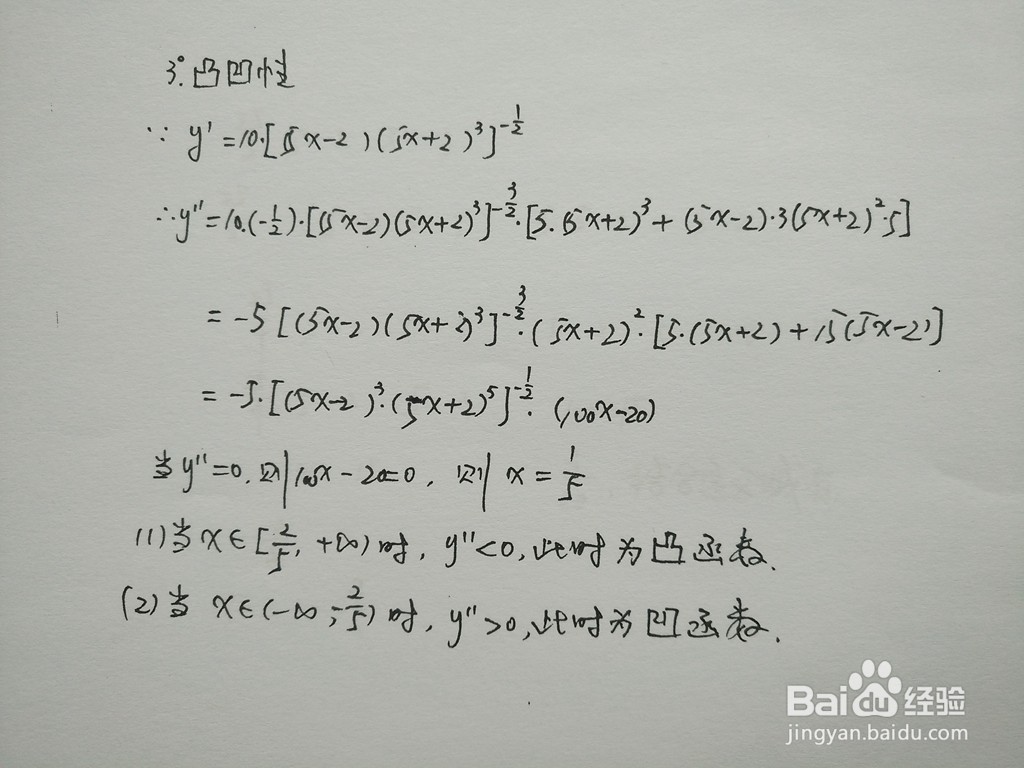 3°.凸凹性
∵ y'=10·[(5x-2)(5x+2)³]^{-1/2}
∴y''=10·(-1/2)·[(5x-2)(5x+2)³]^{-3/2}·[5·(5x+2)³+(5x-2)·3(5x+2)²·5]
=-5[(5x-2)(5x+2)³]^{-3/2}·(5x+2)²·[5·(5x+2)+15(5x-2)]
=-5·[(5x-2)³·(5x+2)⁵]^{-1/2}·(100x-20)
当y''=0,则100x-20=0,则x=1/5
(1)当x∈[2/5,+∞)时,y''<0,此时为凸函数.
(2)当x∈(-∞,-2/5)时,y''>0,此时为凹函数.
Baidu经验
jingyan.baidu.com